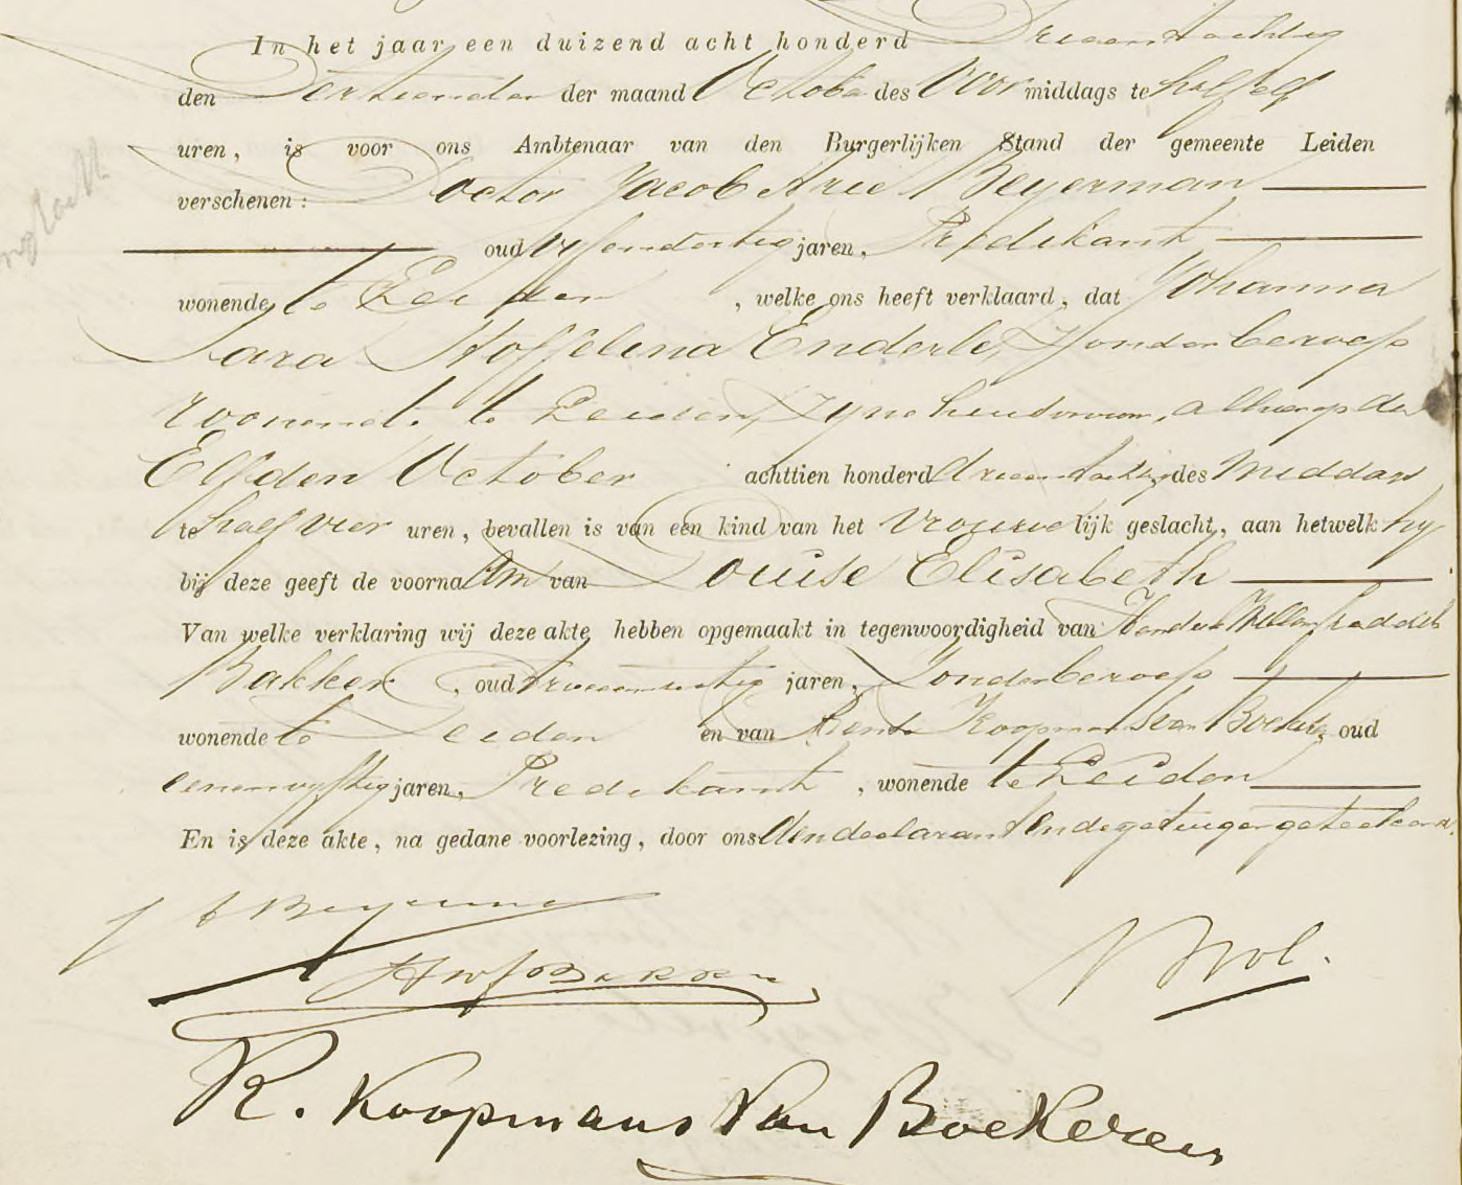 In het jaar een duizend acht honderd Drieentachtig
den Dertienden der maand October des Voor middags te half elf
uren, is voor ons Ambtenaar van den Burgerlijken Stand der gemeente Leiden
verschenen: Doctor Jacob Arie Beyerman
oud vyfendertig jaren, Predikant
wonende te Leiden, welke ons heeft verklaard, dat Johanna
Sara Stoffelina Enderle, Zonder beroep
wonende te Leiden, Zyne huisvrouw, alhier op den
Elfden October achttien honderd drieentachtig des Middags
te half vier uren, bevallen is van een kind van het vrouwelijk geslacht, aan hetwelk hy
bij deze geeft de voornamen van Louise Elisabeth
Van welke verklaring wij deze akte hebben opgemaakt in tegenwoordigheid van Hendrik Willem
Bakker, oud jaren, Zonder beroep
wonende te Leiden en van Rients Koopmans van Boekeren, oud
eenenvyftig jaren, Predikant, wonende te Leiden
En is deze akte, na gedane voorlezing, door ons den declarant en de getuigen geteekend.
J A Beyerman
H W J Bakker
Bool.
R. Koopmans Van Boekeren